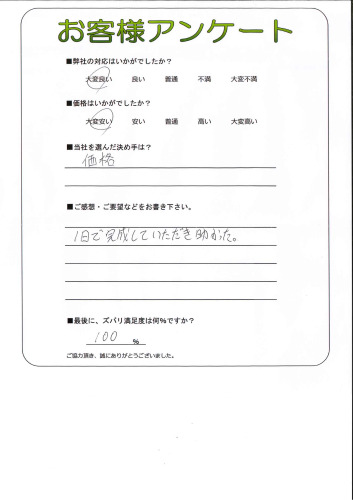 お客様アンケート
■弊社の対応はいかがでしたか？
大変良い 良い 普通 不満 大変不満
■価格はいかがでしたか？
大変安い 安い 普通 高い 大変高い
■当社を選んだ決め手は？
価格
■ご感想・ご要望などをお書き下さい。
1日で完成していただき助かった。
■最後に、ズバリ満足度は何％ですか？
100 ％
ご協力頂き、誠にありがとうございました。